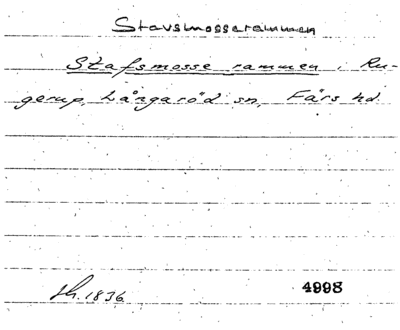 Stavsmosserammen
Stafsmosse rammen, Ru-
gerup, Långaröd sn, Färs hd.
sk. 1836
4998